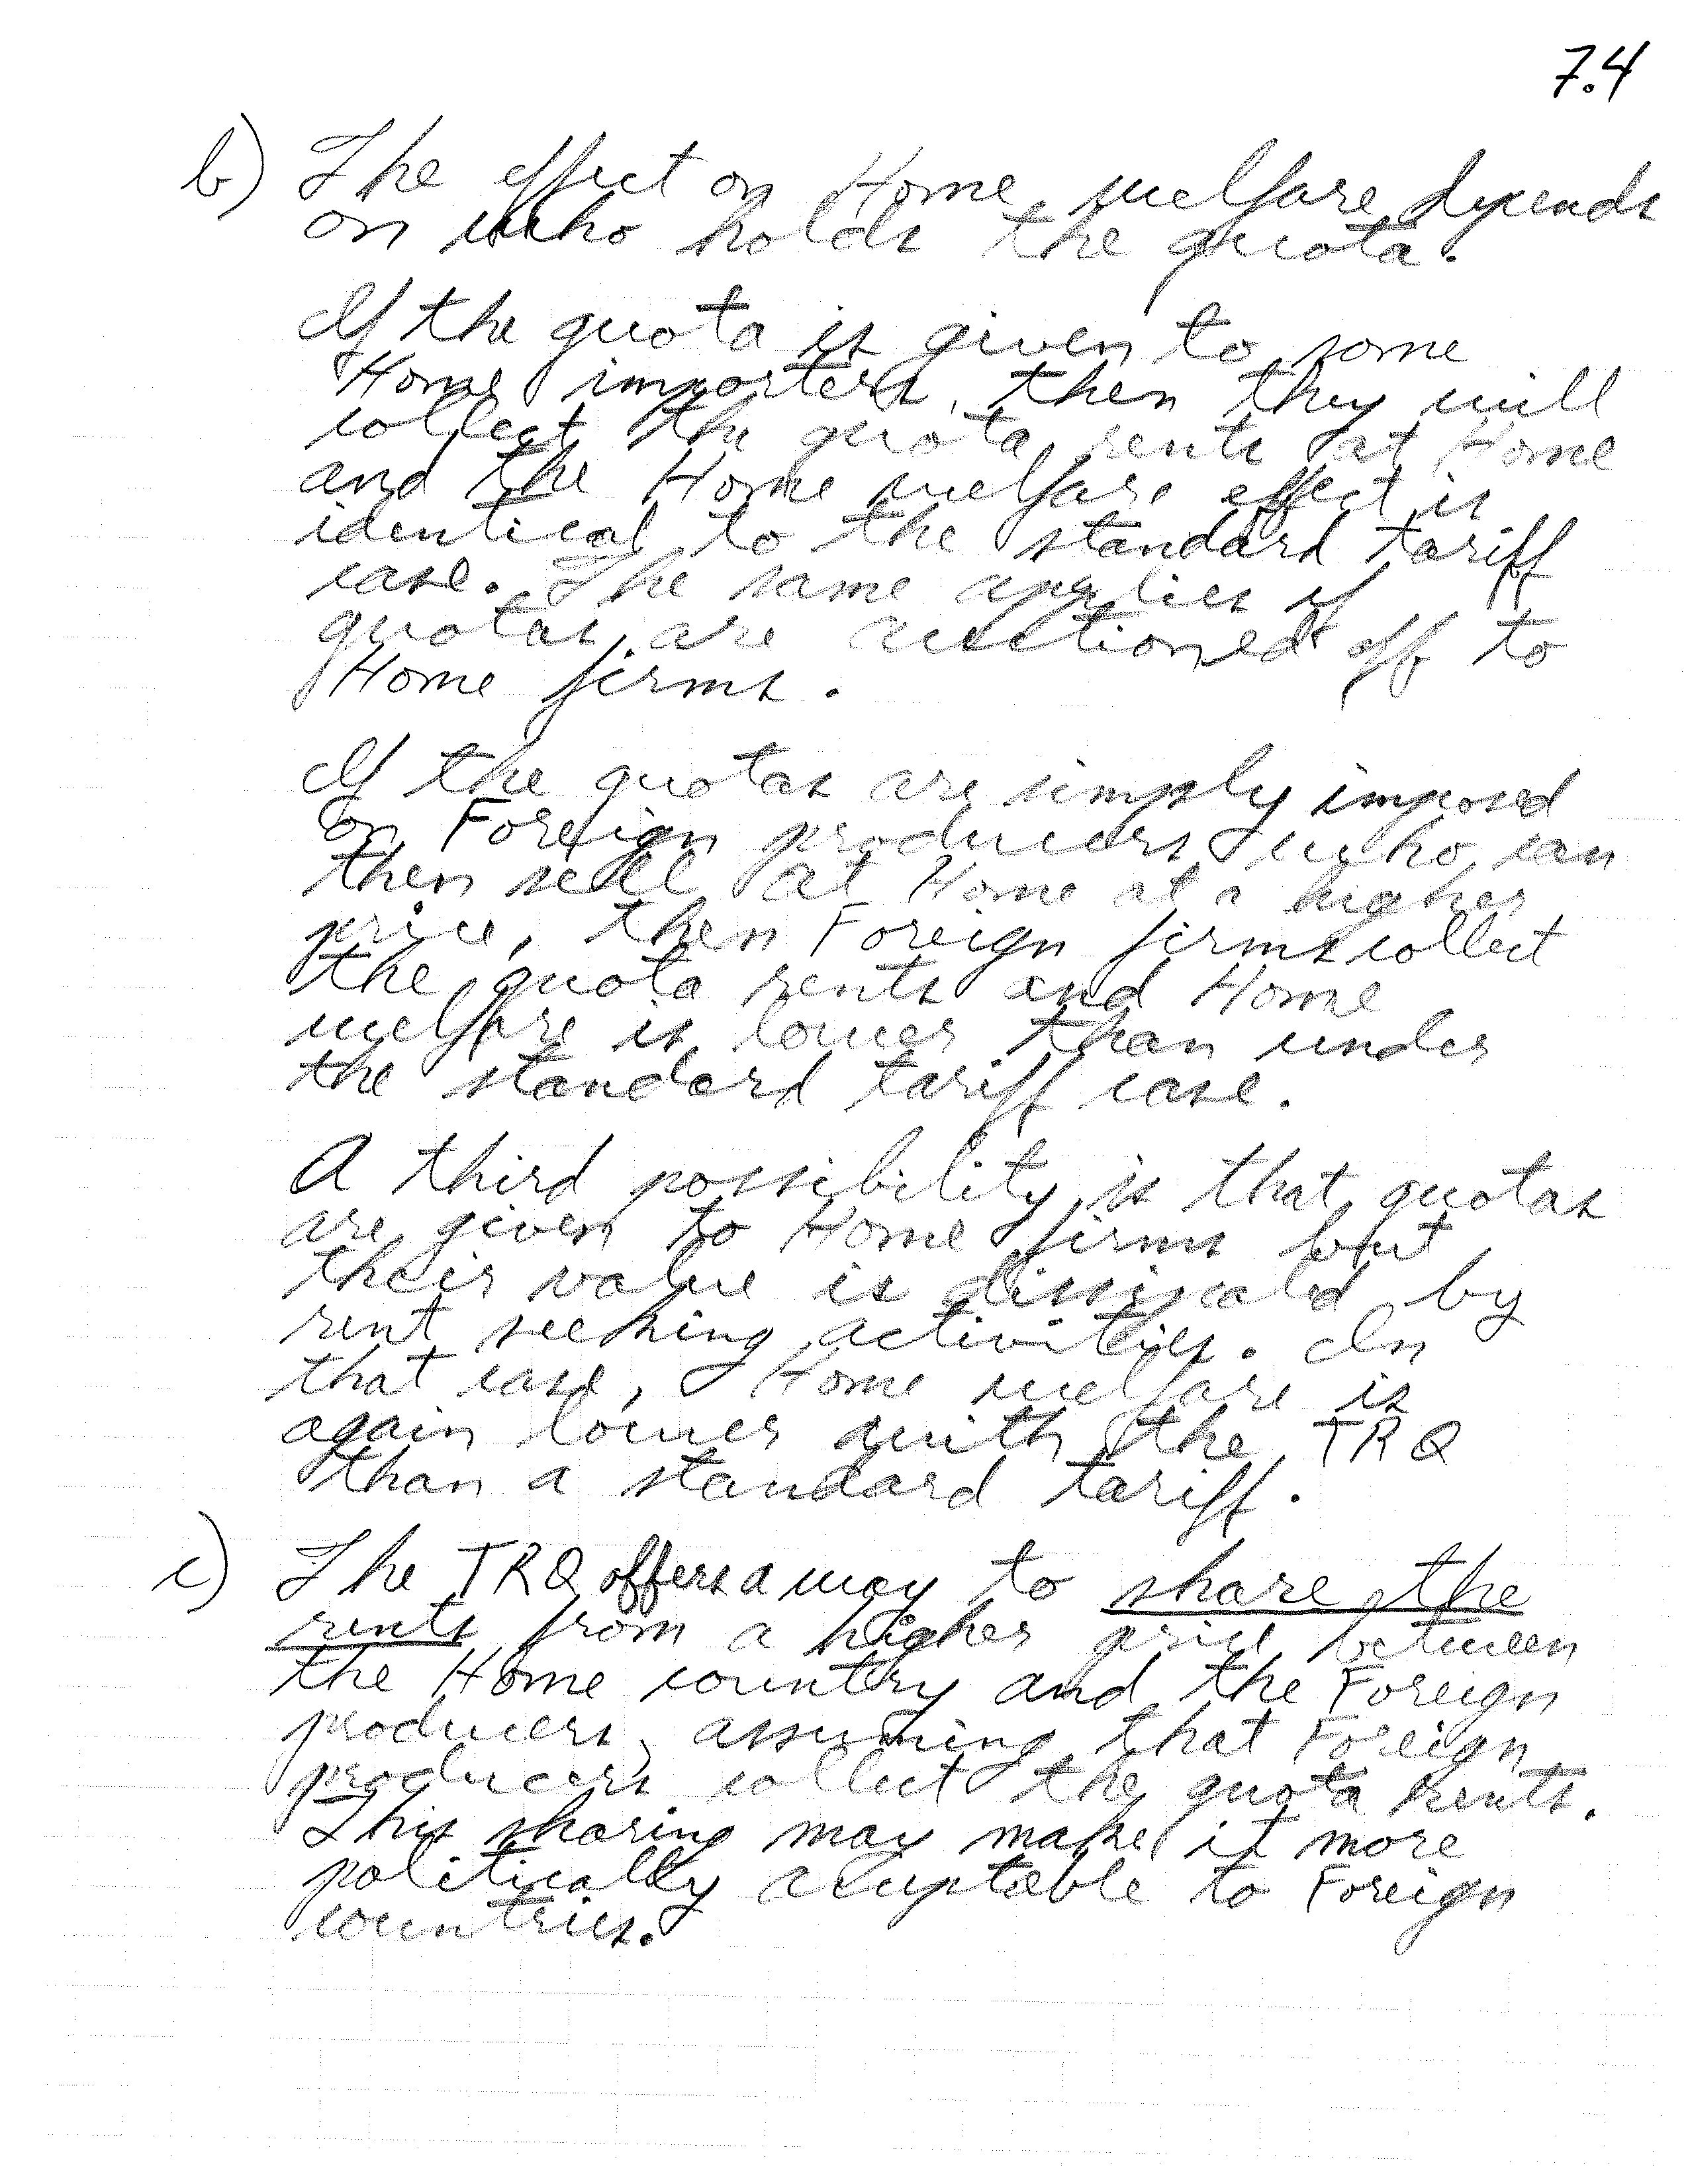 7.4
b) The effect on Home welfare depends
on who holds the quota.
If the quota is given to some
Home importers, then they will
collect the quota rents at Home
and the Home welfare effect is
identical to the standard tariff
case. The same applies if
quotas are auctioned off to
Home firms.
If the quotas are simply imposed
on Foreign producers who can
then sell at Home at a higher
price, then Foreign firms collect
the quota rents and Home
welfare is lower than under
the standard tariff case.
A third possibility is that quotas
are given to Home firms but
their value is dissipated by
rent seeking activities. In
that case, Home welfare is
again lower with the TRQ
than a standard tariff.
c) The TRQ offers a way to share the
rents from a higher price between
the Home country and the Foreign
producers, assuming that Foreign
producers collect the quota rents.
This sharing may make it more
politically acceptable to Foreign
countries.